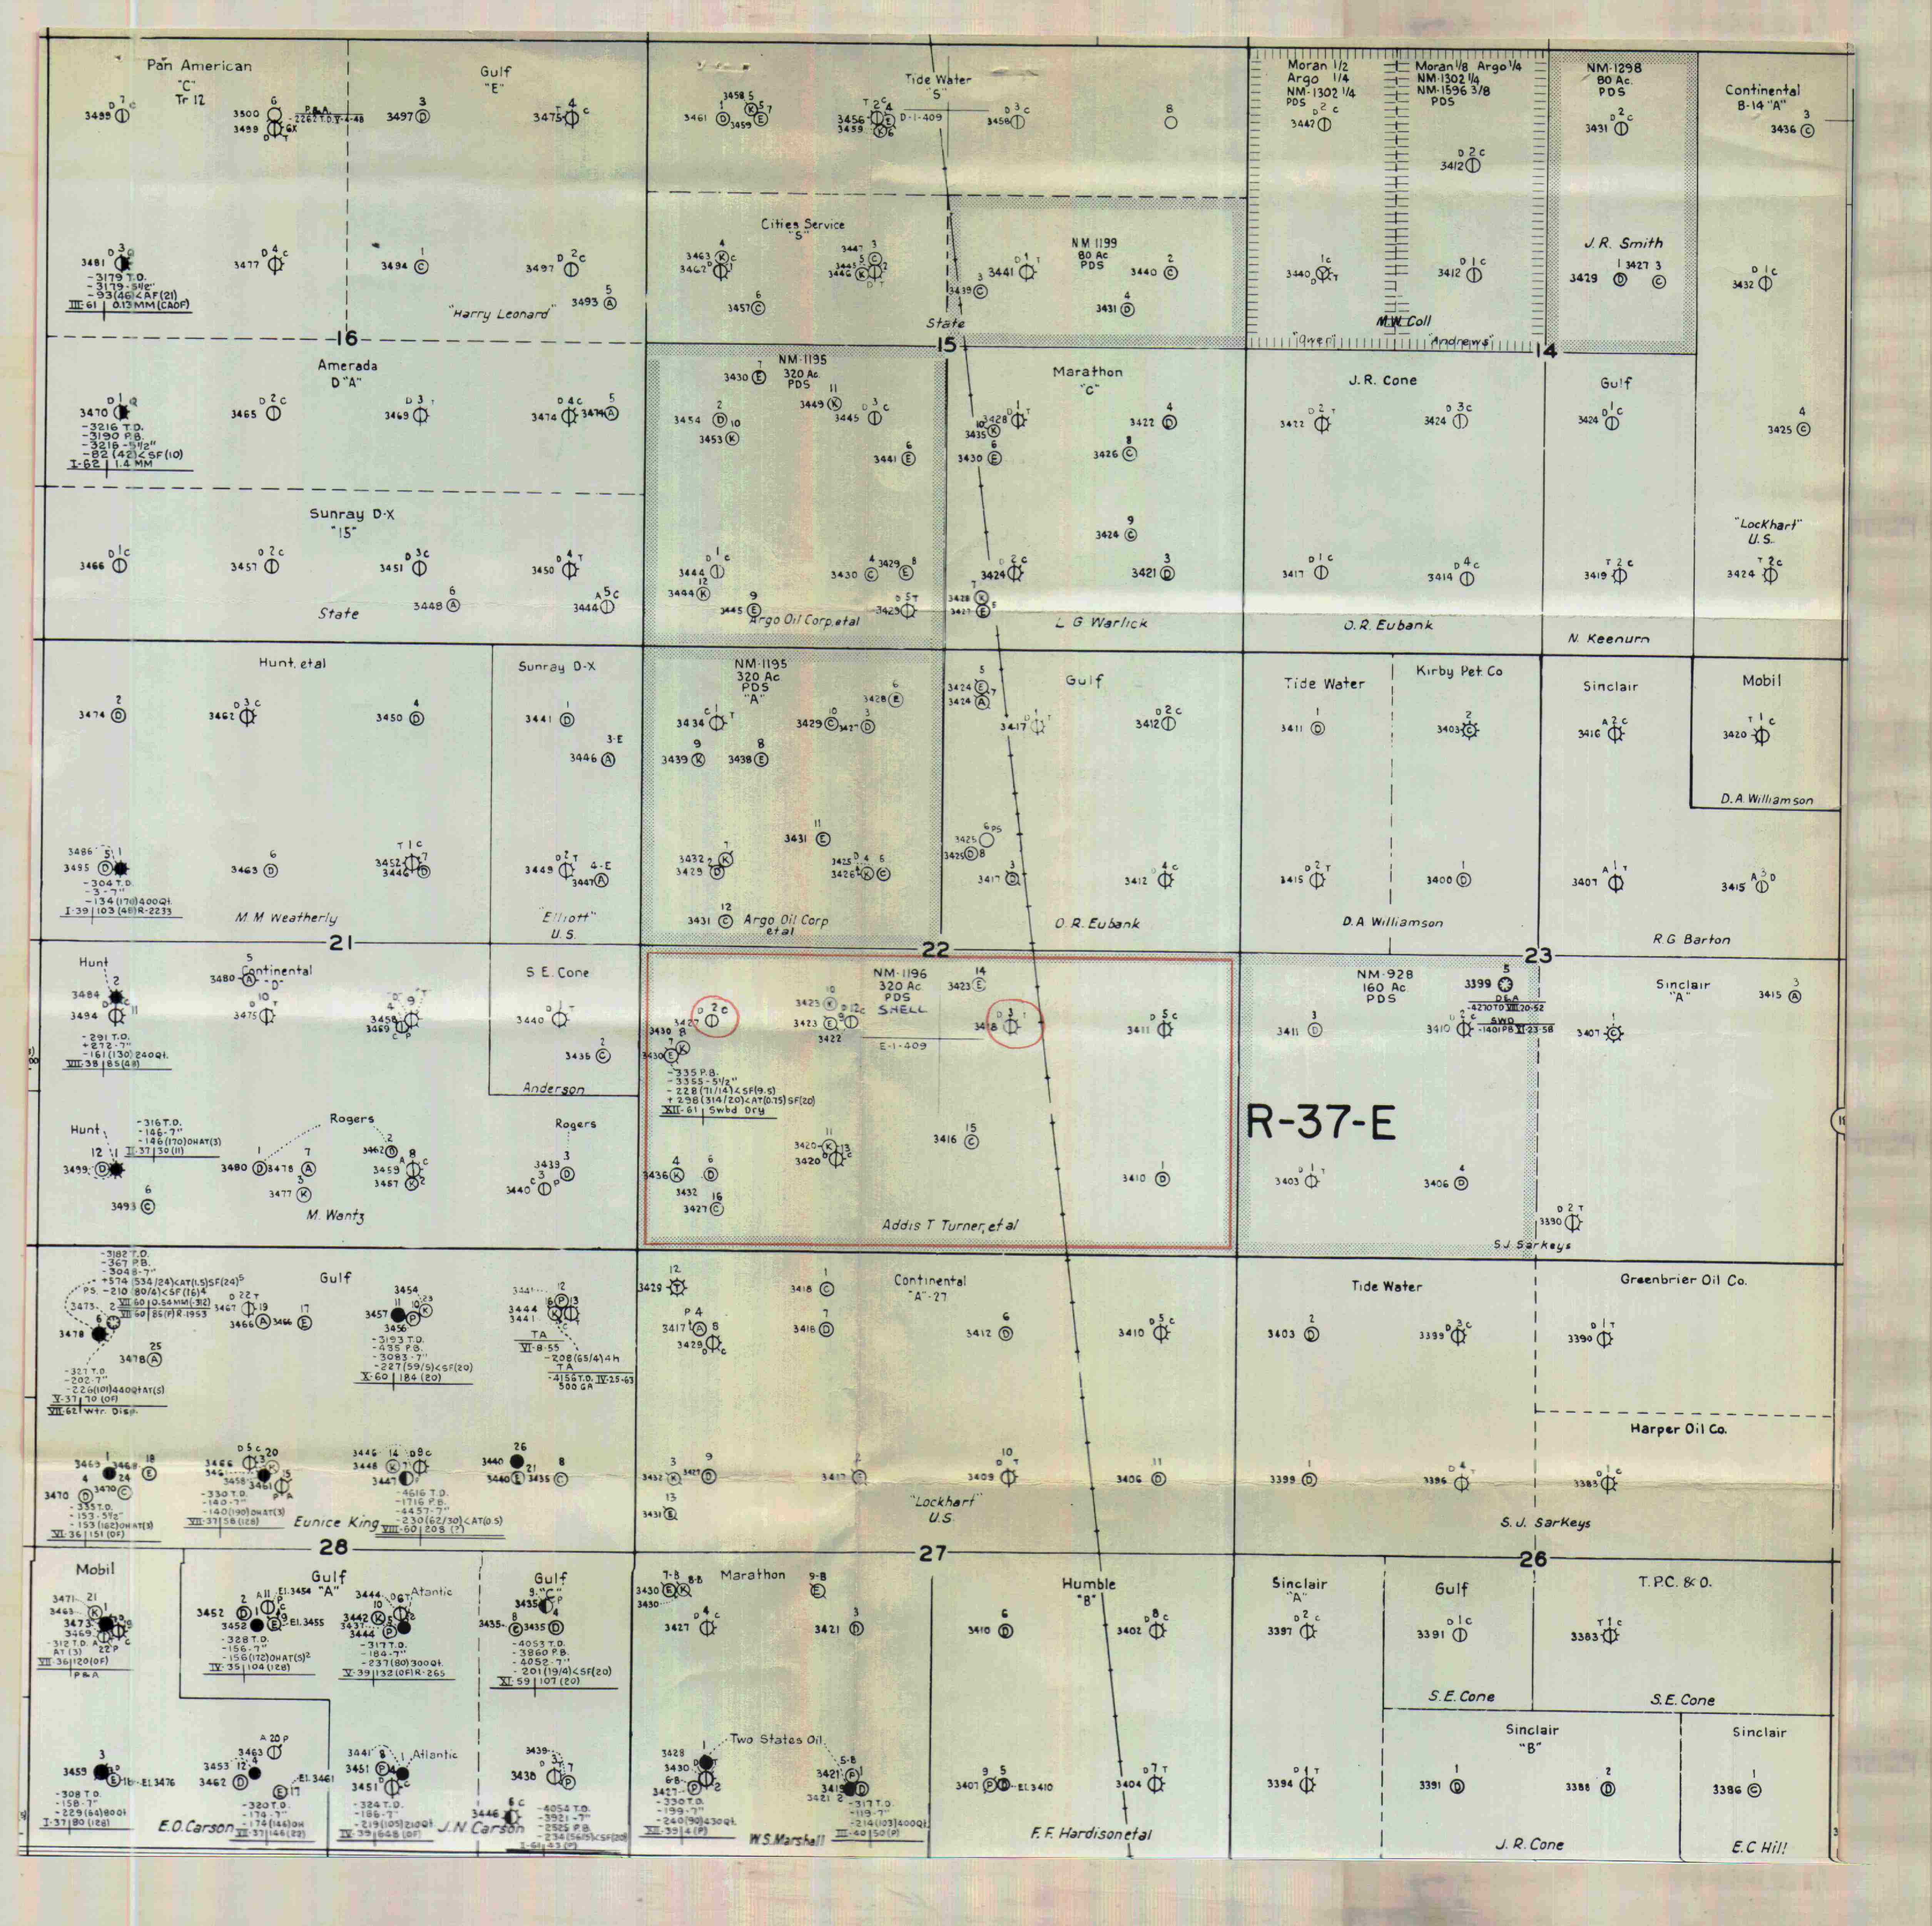 Pan American
"C"
Tr 12
D 7 C
3499
6
3500
3499
P&A
GX
D T
Gulf
"E"
3
3497 D
4
T C
3475
3
3481
-3179 T.D.
-3179-5½"
-93(46)<AF(21)
III-61 | 0.13 MM (CAOF)
D 4 C
3477
1
3494 C
D 2 C
3497
5
3493 A
"Harry Leonard"
16
Tide Water
"S"
3458 5
1
3461 D
3459 E
7
T 2 C 4
3456
3459 K 6
D-1-409
D 3 C
3458
8
Cities Service
"S"
4
3463 K C
3462
6
3457 C
3447 3
3446 K
NM 1199
80 Ac
PDS
3441
3
3439 C
2
3440 C
4
3431 D
State
15
Moran 1/2
Argo 1/4
NM-1302 1/4
PDS
D 2 C
3442
Moran 1/8 Argo 1/4
NM-1302 1/4
NM-1596 3/8
PDS
D 2 C
3412
NM-1298
80 Ac.
PDS
D 2 C
3431
Continental
B-14 "A"
3
3436 C
1 C
3440
D T
D 1 C
3412
J.R. Smith
1 3427 3
3429 D C
D 1 C
3432
M.W. Coll
"Andrews"
14
Amerada
D "A"
D 1
3470
-3216 T.D.
-3190 P.B.
-3216-5½"
-82 (42)<SF(10)
I-62 | 1.4 MM
D 2 C
3465
D 3 T
3469
D 4 C
3474
5
3474 A
NM-1195
320 Ac.
PDS
3430 E
11
3449 K
2
3454 D
10
3453 K
D 3 C
3445
6
3441 E
Marathon
"C"
1
3428
10
3435 K
6
3430 E
4
3422 D
8
3426 C
J.R. Cone
D 2 T
3422
D 3 C
3424
Gulf
D 1 C
3424
4
3425 C
Sunray D-X
"15"
D 1 C
3466
D 2 C
3457
D 3 C
3451
D 4 T
3450
6
3448 A
A 5 C
3444
State
D 1 C
3444
12
3444 K
9
3445 E
4 3429 8
3430 C E
D 5 T
3425
Argo Oil Corp, etal
9
3424 C
D 2 C
3424
3
3421 D
7
3428 K
3427 E
L G Warlick
D 1 C
3417
D 4 C
3414
O.R. Eubank
T 2 C
3419
N. Keenurn
"Lockhart"
U.S.
T 2 C
3424
Hunt, etal
2
3474 D
D 3 C
3462
4
3450 D
Sunray D-X
1
3441 D
3-E
3446 A
NM-1195
320 Ac
PDS
"A"
C 1 T
3434
6
3428 E
10 3
3429 C 3427 D
9
3439 K
8
3438 E
Gulf
5
3424 E
7
3424 A
D 1
3417
D 2 C
3412
Tide Water
1
3411 D
Kirby Pet. Co
2
3403 C
Sinclair
A 2 C
3416
Mobil
T 1 C
3420
D.A. Williamson
3486
5 1
3495 D
-304 T.D.
-3-7"
-134(170)400Qt.
I-39 | 103 (48) R-2233
6
3463 D
T 1 C
3452
7
3446 D
D 2 T
3449
4-E
3447 A
M. M Weatherly
"Elliott"
U.S.
21
11
3431 E
7
3432 K
3429 D
3425 D 4 6
3426 K C
12
3431 C
Argo Oil Corp
etal
6 PS
3425
3425 D 8
3
3417 D
4 C
3412
O.R. Eubank
22
D 2 T
3415
1
3400 D
D.A. Williamson
A 1 T
3407
A 3 D
3415
R.G. Barton
23
Hunt
2
3484
3494
-291 T.D.
+272-7"
-161(130)240Qt.
VII-38 | 85(48)
5
3480 A
Continental
"D"
10
3475
D 9 T
4
3458
3469
C P
S E. Cone
D 1 T
3440
2
3435 C
Anderson
NM-1196
320 Ac
PDS
SHELL
D 2 C
3427
10
3423 K
D 12 C
9
3423 E
3422
14
3423 E
D 3 1
E-1-409
D 5 C
3411
3430 8
7 K
3430 E
-335 P.B.
-3355-5½"
-228(71/14)<SF(9.5)
+298(314/20)<AT(0.75)SF(20)
XII-61 | Swbd Dry
NM-928
160 Ac.
PDS
3
3411 D
2 C
3410
5
3399
D&A
-4210 TD VII-20-52
SWD
-1401 PB XI-23-58
Sinclair
"A"
3407 C
3
3415 A
R-37-E
Hunt
12 11
3499 D
-316 T.D.
-146-7"
-146(170)OHAT(3)
II-37 | 30(11)
6
3493 C
Rogers
1
3480 D
7
3478 A
3
3477 K
2
3462 D
A 8 C
3459
3457 K 2
M. Wantz
Rogers
3439 3
D
3440 C P
11
3420 K
3420
13
15
3416 C
4
3436 K
6
D
3432
16
3427 C
1
3410 D
Addis T Turner, et al
D 1 T
3403
4
3406 D
D 2 T
3390
S.J. Sarkeys
-3182 T.D.
-367 P.B.
-3048-7"
+574(534/24)<AT(1.5)SF(24)5
P.S. -210(80/4)<SF(16)4
VII-60 | 0.54MM(-312)
VII-60 | 86(P)R-1953
3473
2
3478
6
25
3478 A
-327 T.D.
-202-7"
-226(101)440QtAT(5)
V-37 | 70 (OF)
VII-62 | Wtr. Disp.
Gulf
D 22 T
3467
19
3466 A
17
3466 E
3454
3457
11 10 23
P
3456
-3193 T.D.
-435 P.B.
-3083-7"
-227(59/5)<SF(20)
X-60 | 184 (20)
3441
12
3444
3441
TA
VI-8-55
-208(65/4)4h
TA
-4156 T.D. IV-25-63
500 GA
12
3429 T
P 4
3417 A 8
3429
D C
1
3418 C
7
3418 D
Continental
"A"-27
6
3412 D
D 5 C
3410
Tide Water
2
3403 D
D 3 C
3399
Greenbrier Oil Co.
D 1 T
3390
Harper Oil Co.
1
3469 3468 18
E
4 24
3470 D 3470 C
-335 T.D.
-153-5½"
-153(182)OHAT(3)
VI-36 | 151(OF)
D 5 C 20
3466
3458
3461
-330 T.D.
-140-7"
-140(190)OHAT(3)
VII-37 | 58(128)
3446 14 D 9 C
3448 K
3447
-4616 T.D.
-1716 P.B.
-4457-7"
-230(62/30)<AT(0.5)
VIII-60 | 208 (?)
Eunice King
26
3440
21 8
3440 E 3435 C
28
9
3432 K 3427 D
13
3431 E
10
3409
11
3406 D
"Lockhart"
U.S.
27
1
3399 D
D 4 T
3396
D 1 C
3383
S. J. Sarkeys
26
Mobil
3471 21
3463 K
3473
3469
-312 T.D.
AT(3) 22 P
VII-36 | 120(OF)
P&A
Gulf
"A"
A 11
El. 3454
2
3452 D
3452
E El. 3455
-328 T.D.
-156-7"
-156(172)OHAT(5)2
IV-35 | 104(128)
3444
Atantic
10
3442 K
3437
3444 P
-317 T.D.
-184-7"
-237(80)300Qt.
V-39 | 132(OF)R-265
Gulf
"C"
3435
8 4
3435 E 3435 D
-4053 T.D.
-3860 P.B.
-4052-7"
-201(19/4)<SF(20)
XI-59 | 107(20)
7-B 8-B
3430 E K
3430
Marathon
9-B
E
D 4 C
3427
3
3421 D
Humble
"B"
6
3410 D
D 8 C
3402
Sinclair
"A"
D 2 C
3397
Gulf
D 1 C
3391
S.E. Cone
T.P.C. & O.
T 1 C
3383
S.E. Cone
3
3459
E 16 El. 3476
-308 T.D.
-158-7"
-229(64)80Qt
I-37 | 80(128)
A 20 P
3463
3453 12 4
3462 D
El. 3461
E 17
-320 T.D.
-174-7"
-174(146)OH
VII-37 | 146(22)
E.O. Carson
3441 8 1 Atlantic
3451 P
3451
-324 T.D.
-186-7"
-219(105)210Qt
IV-39 | 648(OF)
J.N. Carson
3439
3438
7
P
6 C
3446
-4054 T.D.
-3921-7"
-2525 P.B.
-234(56/5)<SF(20)
I-61 | 43(P)
Two States Oil
1
3428
3430
6-B
3427 P 2
-330 T.D.
-199-7"
-240(90)430Qt
XII-39 | 4(P)
5-B
3421 P 1
3419 D
3421 2
-317 T.D.
-119-7"
-214(103)400Qt
III-40 | 50(P)
W.S. Marshall
9 5
3407 P D El. 3410
D 7 T
3404
F. F. Hardison etal
D 1 T
3394
Sinclair
"B"
1
3391 D
2
3388 D
J. R. Cone
Sinclair
1
3386 C
E.C Hill